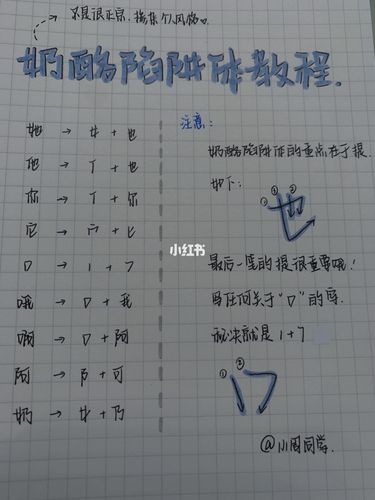 不是很正宗,掺杂个人风格。
奶酪陷阱体教程.
她 → 女 + 也
他 → 亻 + 也
你 → 亻 + 尔
它 → 宀 + 匕
口 → 1 + 7
哦 → 口 + 我
啊 → 口 + 阿
阿 → 阝 + 可
奶 → 女 + 乃
注意:
奶酪陷阱体的重点在于提.
如下:
① ② ③
也
最后一笔的提很重要哦!
写任何关于“口”的字.
秘诀就是 1 + 7
① ②
@小周同学.
小红书